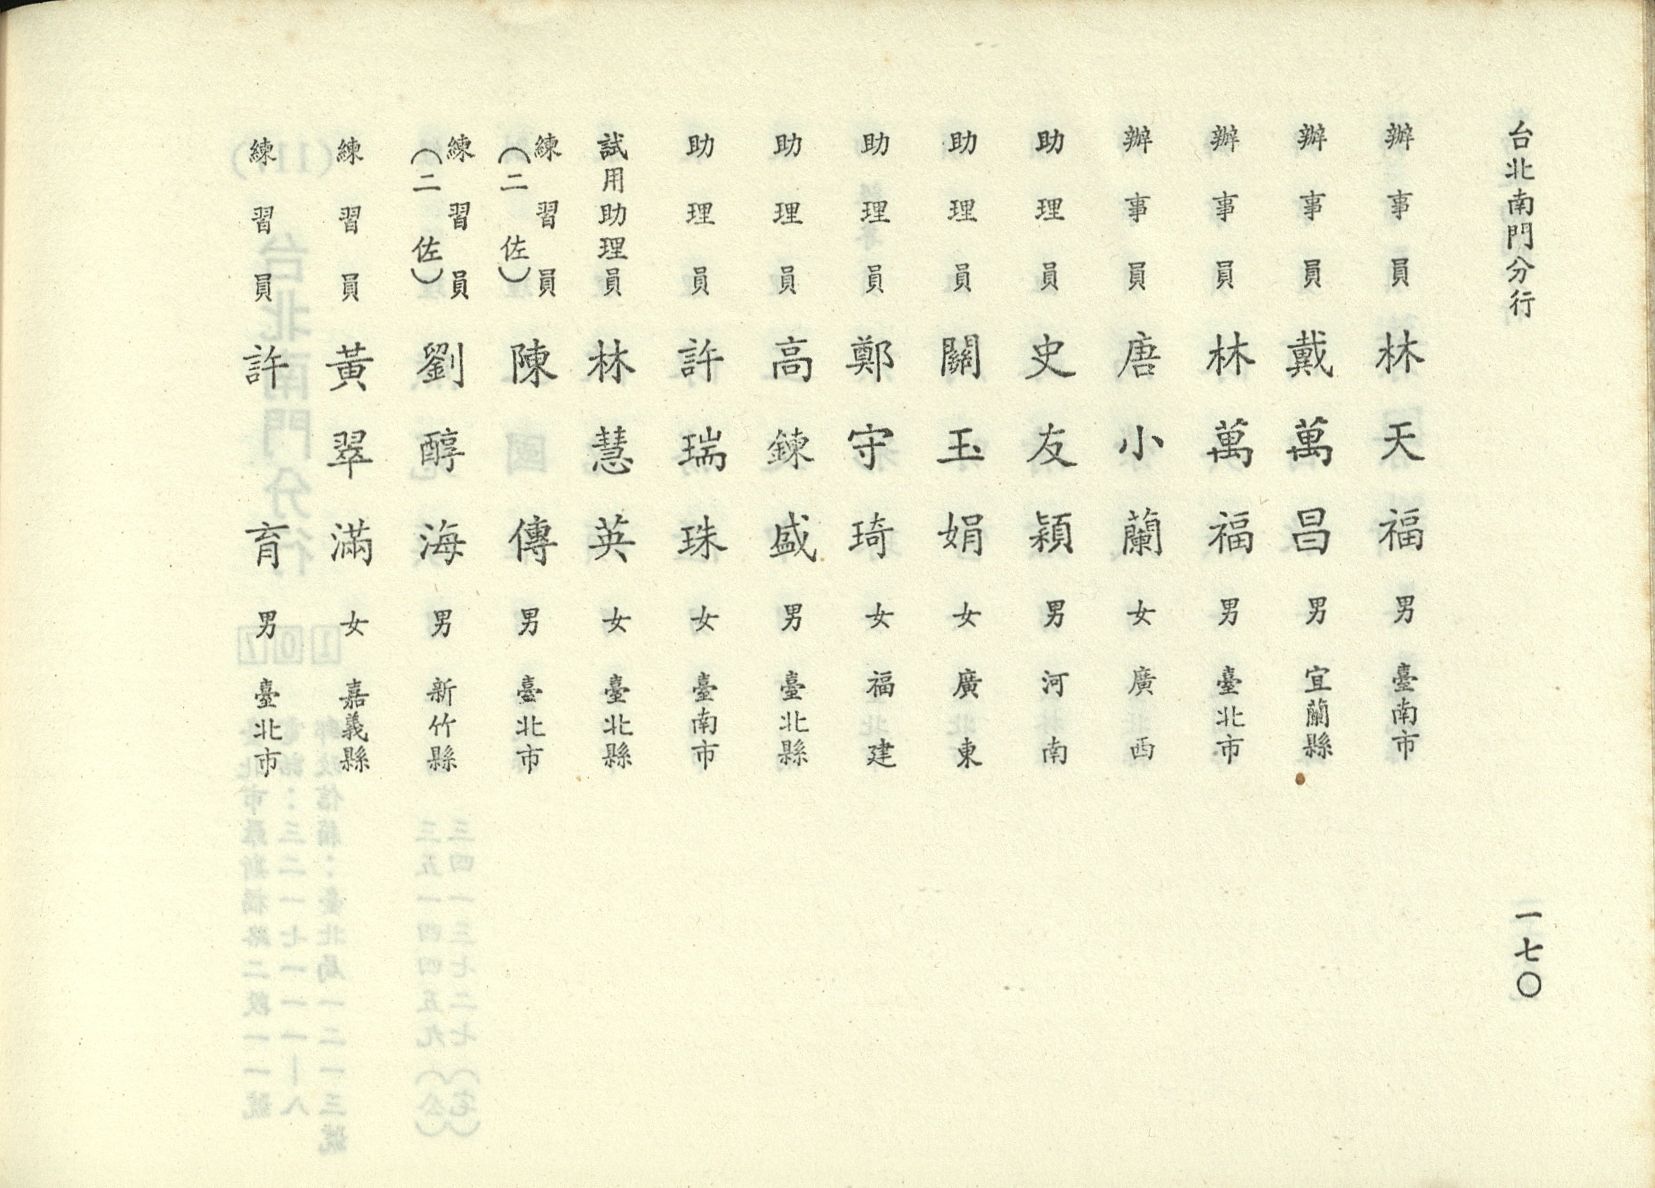 台北南門分行
一七〇
辦事員 林天福 男 臺南市
辦事員 戴萬昌 男 宜蘭縣
辦事員 林萬福 男 臺北市
辦事員 唐小蘭 女 廣西
助理員 史友潁 男 河南
助理員 關玉娟 女 廣東
助理員 鄭守琦 女 福建
助理員 高鍊盛 男 臺北縣
助理員 許瑞珠 女 臺南市
試用助理員 林慧英 女 臺北縣
練習員(二佐) 陳傳 男 臺北市
練習員(二佐) 劉醇海 男 新竹縣
練習員 黃翠滿 女 嘉義縣
練習員 許育 男 臺北市